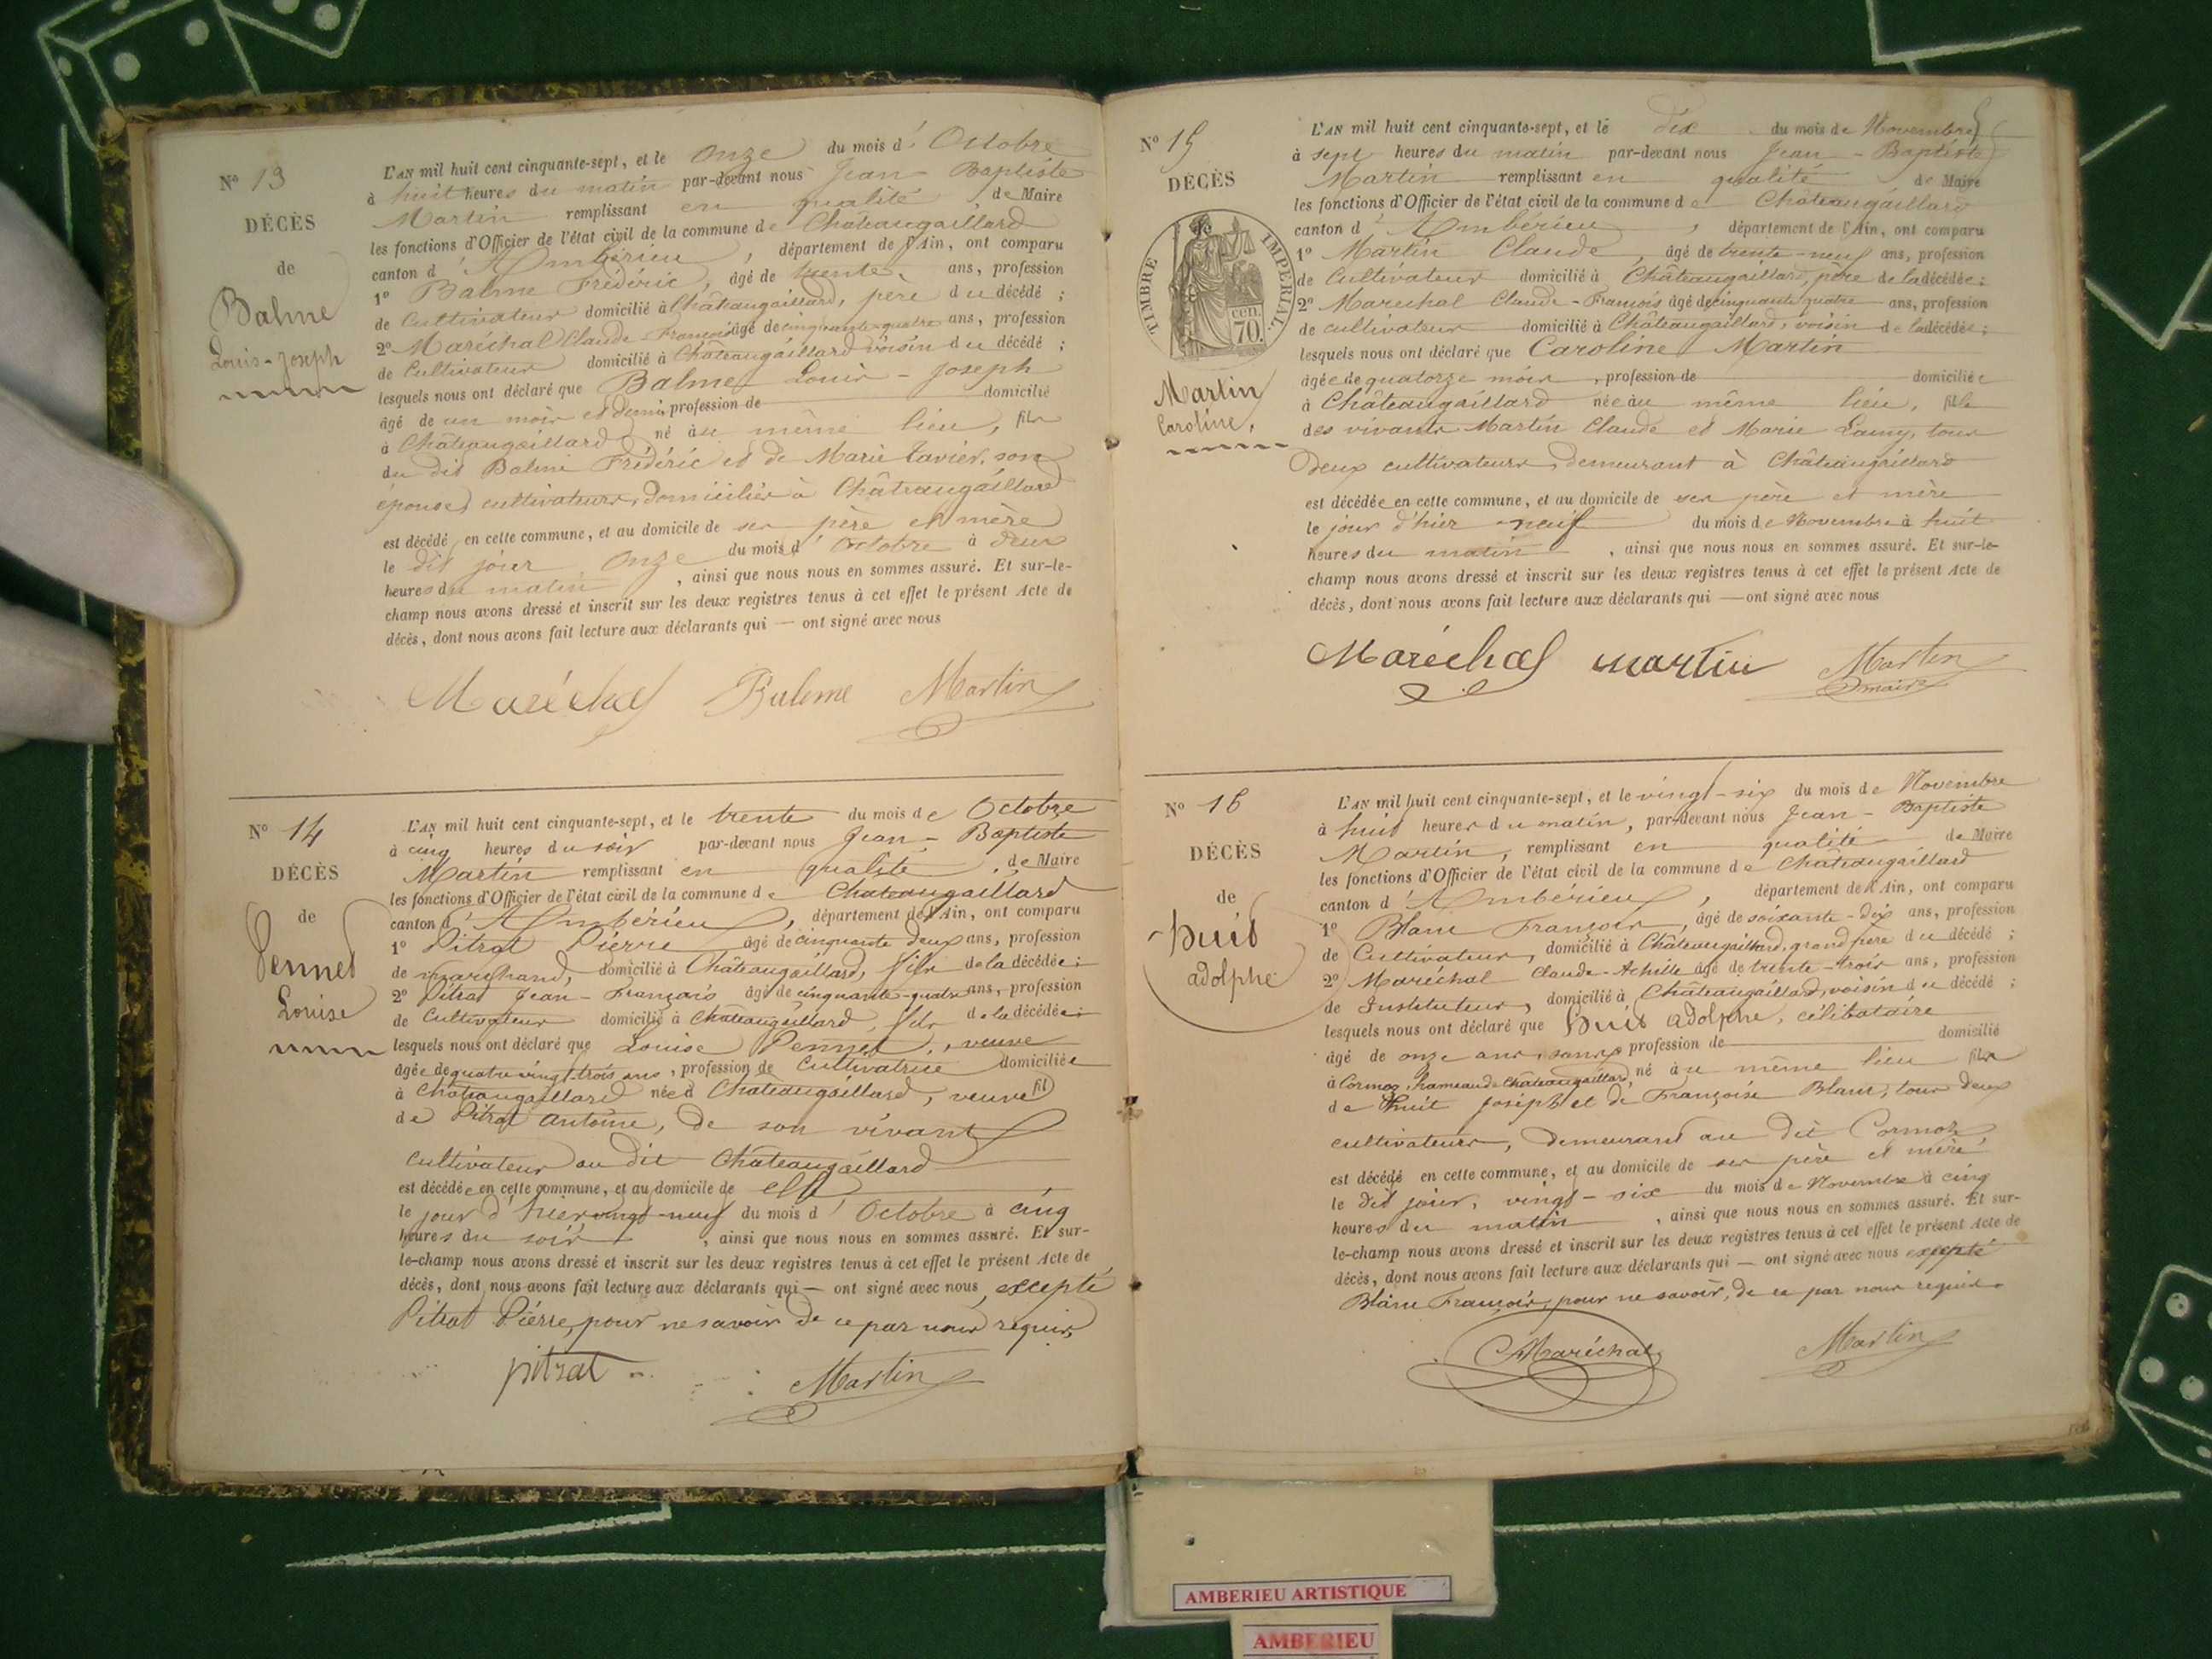 N° 13
DÉCÈS
de
Balme
Louis-Joseph
L'AN mil huit cent cinquante-sept, et le onze du mois d'Octobre
à huit heures du matin par-devant nous Jean-Baptiste
Martin remplissant en qualité de Maire
les fonctions d'Officier de l'état civil de la commune de Châteaugaillard
canton d'Ambérieu, département de l'Ain, ont comparu
1° Balme Frédéric, âgé de trente ans, profession
de Cultivateur domicilié à Châteaugaillard, père du décédé ;
2° Maréchal Claude-François âgé de cinquante-quatre ans, profession
de Cultivateur domicilié à Châteaugaillard voisin du décédé ;
lesquels nous ont déclaré que Balme Louis-Joseph
âgé de un mois et demi profession de domicilié
à Châteaugaillard né au même lieu, fils
du dit Balme Frédéric et de Marie Tavier, son
épouse, cultivateurs, domiciliés à Châteaugaillard
est décédé en cette commune, et au domicile de ses père et mère
le dit jour onze du mois d'Octobre à deux
heures du matin, ainsi que nous nous en sommes assuré. Et sur-le-
champ nous avons dressé et inscrit sur les deux registres tenus à cet effet le présent Acte de
décès, dont nous avons fait lecture aux déclarants qui — ont signé avec nous
Maréchal Balme Martin
N° 14
DÉCÈS
de
Pennet
Louise
L'AN mil huit cent cinquante-sept, et le trente du mois de Octobre
à cinq heures du soir par-devant nous Jean-Baptiste
Martin remplissant en qualité de Maire
les fonctions d'Officier de l'état civil de la commune de Chateaugaillard
canton d'Ambérieu, département de l'Ain, ont comparu
1° Pitrat Pierre âgé de cinquante deux ans, profession
de marchand, domicilié à Châteaugaillard, fils de la décédée ;
2° Pitrat Jean-François âgé de cinquante-quatre ans, profession
de Cultivateur domicilié à Chateaugaillard, fils de la décédée ;
lesquels nous ont déclaré que Louise Pennet, veuve
âgée de quatre vingt-trois ans, profession de Cultivatrice domiciliée
à Chateaugaillard née à Chateaugaillard, veuve fil
de Pitrat Antoine, de son vivant
cultivateur au dit Chateaugaillard
est décédée en cette commune, et au domicile de elle
le jour d'hier vingt-neuf du mois d'Octobre à cinq
heures du soir, ainsi que nous nous en sommes assuré. Et sur-
le-champ nous avons dressé et inscrit sur les deux registres tenus à cet effet le présent Acte de
décès, dont nous avons fait lecture aux déclarants qui — ont signé avec nous, excepté
Pitrat Pierre, pour ne savoir de ce par nous requis
pitrat Martin
N° 15
DÉCÈS
TIMBRE IMPÉRIAL.
70 cen.
Martin
Caroline,
L'AN mil huit cent cinquante-sept, et le dix du mois de Novembre
à sept heures du matin par-devant nous Jean-Baptiste
Martin remplissant en qualité de Maire
les fonctions d'Officier de l'état civil de la commune de Châteaugaillard
canton d'Ambérieu, département de l'Ain, ont comparu
1° Martin Claude, âgé de trente-neuf ans, profession
de Cultivateur domicilié à Châteaugaillard, père de la décédée ;
2° Maréchal Claude-François âgé de cinquante quatre ans, profession
de cultivateur domicilié à Châteaugaillard, voisin de la décédée ;
lesquels nous ont déclaré que Caroline Martin
âgée de quatorze mois, profession de domiciliée
à Châteaugaillard née au même lieu, fille
des vivants Martin Claude et Marie Lamy, tous
deux cultivateurs demeurant à Châteaugaillard
est décédée en cette commune, et au domicile de ses père et mère
le jour d'hier neuf du mois de Novembre à huit
heures du matin, ainsi que nous nous en sommes assuré. Et sur-le-
champ nous avons dressé et inscrit sur les deux registres tenus à cet effet le présent Acte de
décès, dont nous avons fait lecture aux déclarants qui — ont signé avec nous
Maréchal martin Martin
maire
N° 16
DÉCÈS
de
Huit
adolphe
L'AN mil huit cent cinquante-sept, et le vingt-six du mois de Novembre
à huit heures du matin, par-devant nous Jean-Baptiste
Martin, remplissant en qualité de Maire
les fonctions d'Officier de l'état civil de la commune de Chateaugaillard
canton d'Ambérieu, département de l'Ain, ont comparu
1° Blanc François, âgé de soixante-dix ans, profession
de Cultivateur, domicilié à Châteaugaillard, grand père du décédé ;
2° Maréchal Claude-Achille âgé de trente-trois ans, profession
de Instituteur, domicilié à Châteaugaillard, voisin du décédé ;
lesquels nous ont déclaré que Huit adolphe, célibataire
âgé de onze ans, sans profession de domicilié
à Cormoz, hameau de Châteaugaillard, né au même lieu fils
de Huit Joseph et de Françoise Blanc, tous deux
cultivateurs, demeurant au dit Cormoz
est décédé en cette commune, et au domicile de ses père et mère
le dit jour, vingt-six du mois de Novembre à cinq
heures du matin, ainsi que nous nous en sommes assuré. Et sur-
le-champ nous avons dressé et inscrit sur les deux registres tenus à cet effet le présent Acte de
décès, dont nous avons fait lecture aux déclarants qui — ont signé avec nous excepté
Blanc François, pour ne savoir, de ce par nous requis.
Maréchal Martin
AMBERIEU ARTISTIQUE
AMBERIEU